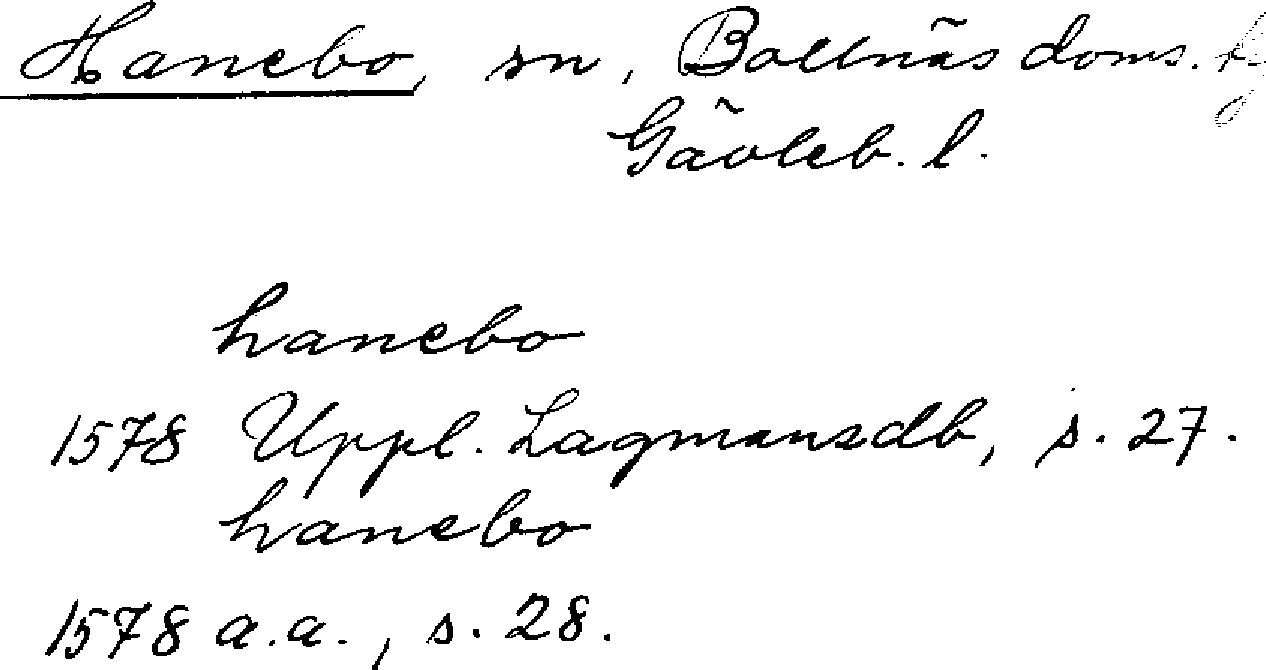 Hanebo, sn, Bollnäs doms.
Gävleb. l.
hanebo
1578 Uppl. Lagmansdb, s. 27.
hanebo
1578 a.a., s. 28.